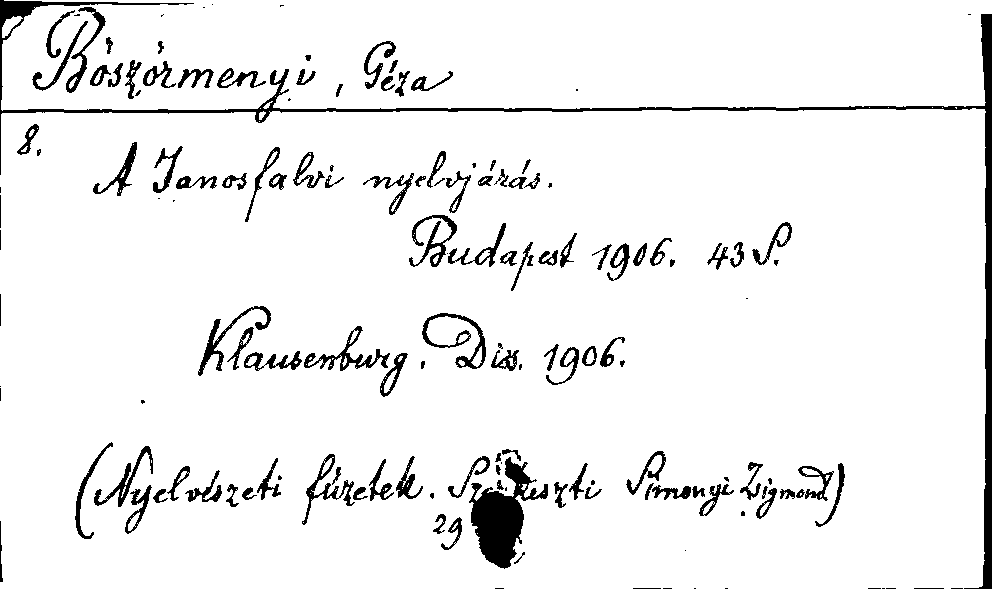 Böszörmenyi, Géza
8.
A Janosfalvi nyelvjárás.
Budapest 1906. 43 S.
Klausenburg. Diss. 1906.
(Nyelvészeti füzetek. Simonyi Zsigmond)
29